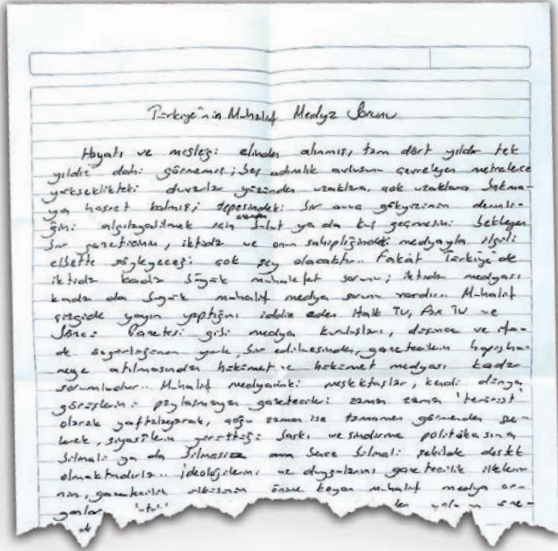 Türkiye'nin Muhalif Medya Sorunu
Hayatı ve mesleği elinden alınmış, tam dört yıldır tek
yıldız dahi görmemiş; beş adımlık avlusunu çevreleyen metrelerce
yükseklikteki duvarlar yüzünden uzaklara, çok uzaklara bakma-
ya hasret kalmış; tepesindeki bir avuç gökyüzünün derinli-
ğini algılayabilmek için üzerinden bulut ya da kuş geçmesini bekleyen
bir gazetecinin, iktidar ve onun sahipliğindeki medyayla ilgili
elbette söyleyeceği çok şey olacaktır.. Fakat Türkiye'de
iktidar kadar büyük muhalefet sorunu; iktidar medyası
kadar da büyük muhalif medya sorunu vardır.. Muhalif
çizgide yayın yaptığını iddia eden Halk TV, Fox TV ve
Sözcü Gazetesi gibi medya kuruluşları, düşünce ve ifa-
de özgürlüğünün yok edilmesinden, gazetecilerin hapisha-
neye atılmasından hükümet ve hükümet medyası kadar
sorumludur.. Muhalif medyadaki meslektaşlar, kendi dünya
görüşlerini paylaşmayan gazetecileri zaman zaman 'terörist'
olarak yaftalayarak, çoğu zaman ise tamamen görmezden ge-
lerek, siyasilerin yürüttüğü baskı ve sindirme politikasına,
bilmeli ya da bilmesizce ama bence bilmeli şekilde destek
olmaktadır.. ideolojilerini ve duygularını gazetecilik ilkeleri-
nin, gazetecilik etiğinin önüne koyan muhalif medya or-
ganları